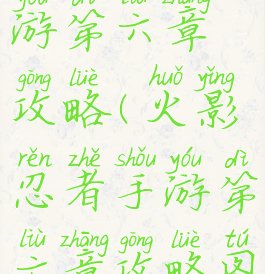 yóu dì liù zhāng
游第六章
gōng lüè huǒ yǐng
攻略(火影
rěn zhě shǒu yóu dì
忍者手游第
liù zhāng gōng lüè tú
六章攻略图